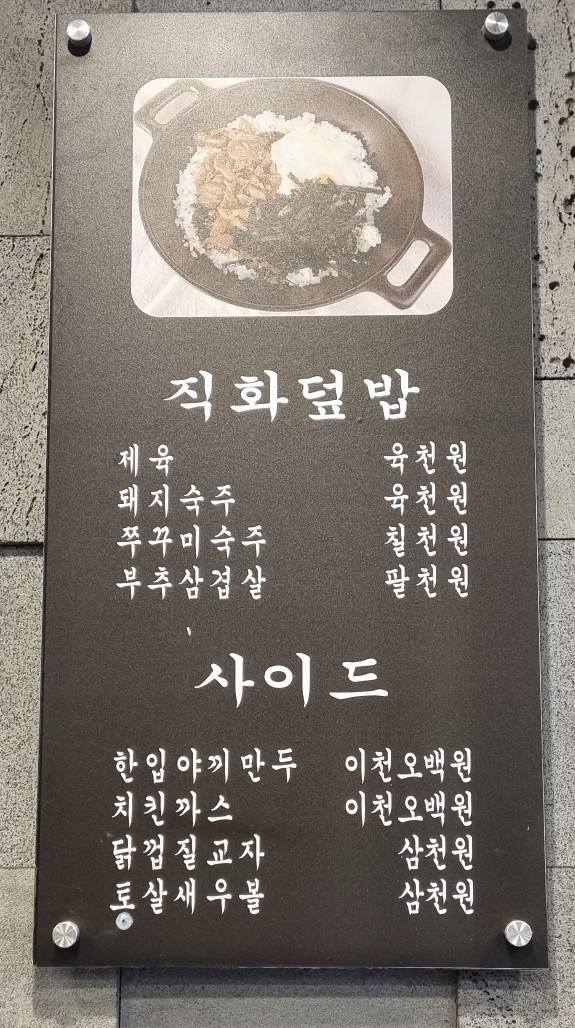 직화덮밥
제육 육천원
돼지숙주 육천원
쭈꾸미숙주 칠천원
부추삼겹살 팔천원
사이드
한입야끼만두 이천오백원
치킨까스 이천오백원
닭껍질교자 삼천원
토살새우볼 삼천원